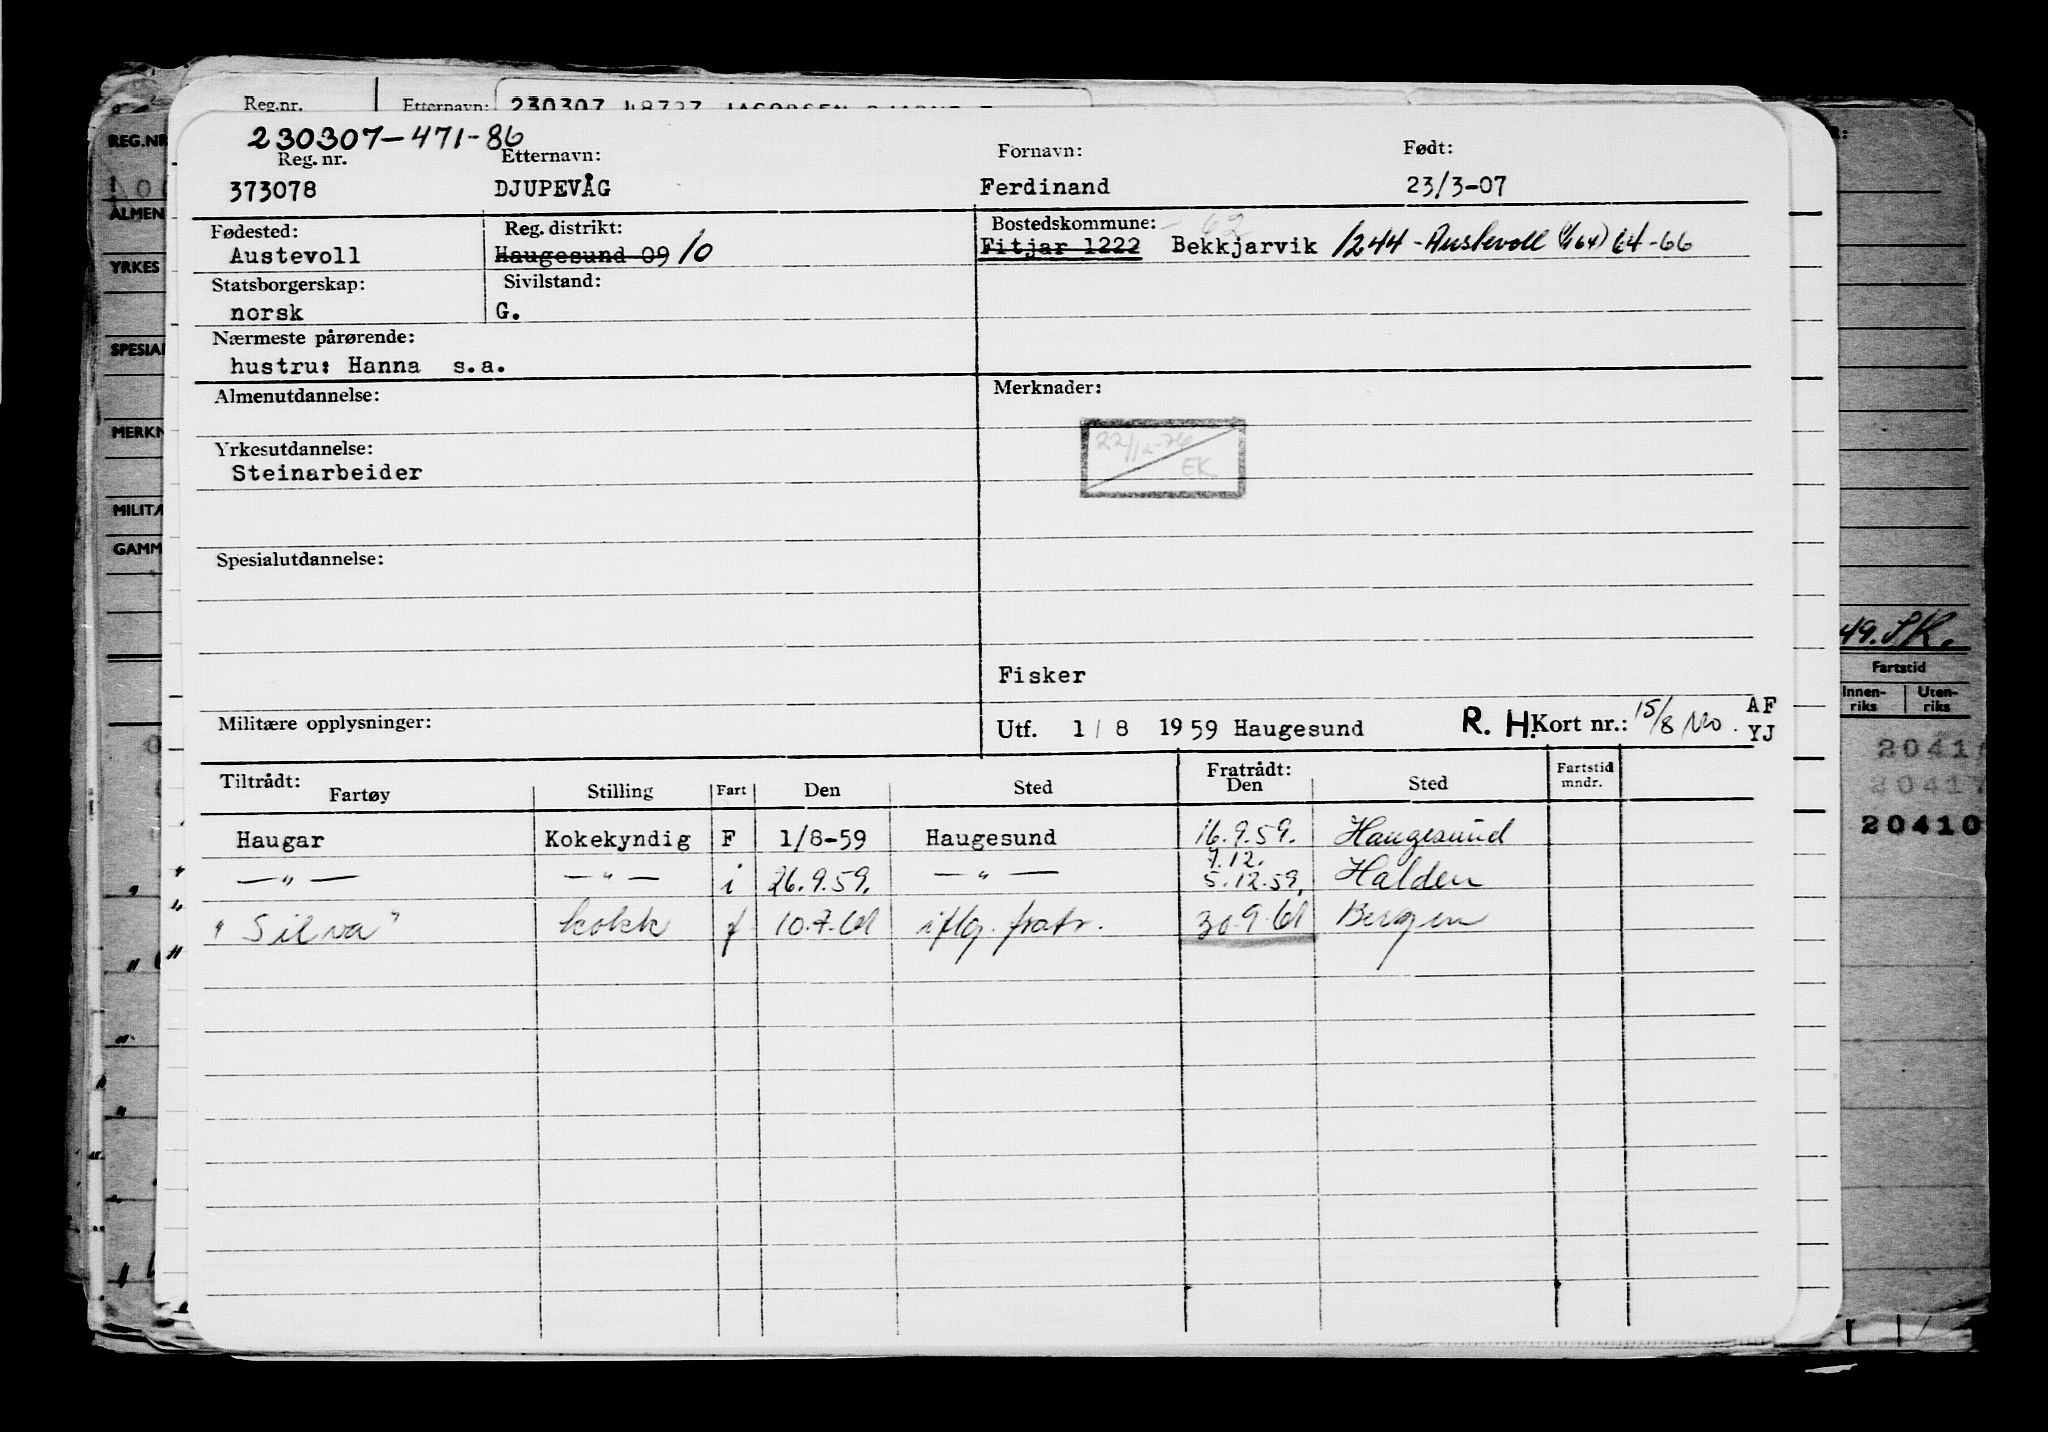 Reg.nr.
Etternavn:
REG.NR
230307-471-86
Reg. nr.
Etternavn:
Fornavn:
Født:
373078
DJUPEVÅG
Ferdinand
23/3-07
ALMEN
Fødested:
Reg. distrikt:
Bostedskommune: - 62
Austevoll
Haugesund 09 10
Fitjar 1222 Bekkjarvik 1244 - Austevoll 64-66
YRKES
Statsborgerskap:
Sivilstand:
norsk
G.
Nærmeste pårørende:
SPESIAL
hustru: Hanna s.a.
Almenutdannelse:
Merknader:
MERKN
22/12-76
EK
Yrkesutdannelse:
Steinarbeider
MILITÆ
GAMM
Spesialutdannelse:
49. SK.
Fartstid
Innen-
riks
Uten-
riks
Fisker
Militære opplysninger:
Utf. 1/8 1959 Haugesund
R. H. Kort nr.: 15/8
AF
YJ
20411
20417
20410
Tiltrådt:
Fratrådt:
Fartøy
Stilling
Fart
Den
Sted
Den
Sted
Fartstid
mndr.
Haugar Kokekyndig F 1/8-59 Haugesund 16.9.59. Haugesund
7.12.
—"— —"— i 26.9.59. —"— 5.12.59. Halden
"Silva" kokk f 10.7.61 iflg. fratr. 30.9.61 Bergen